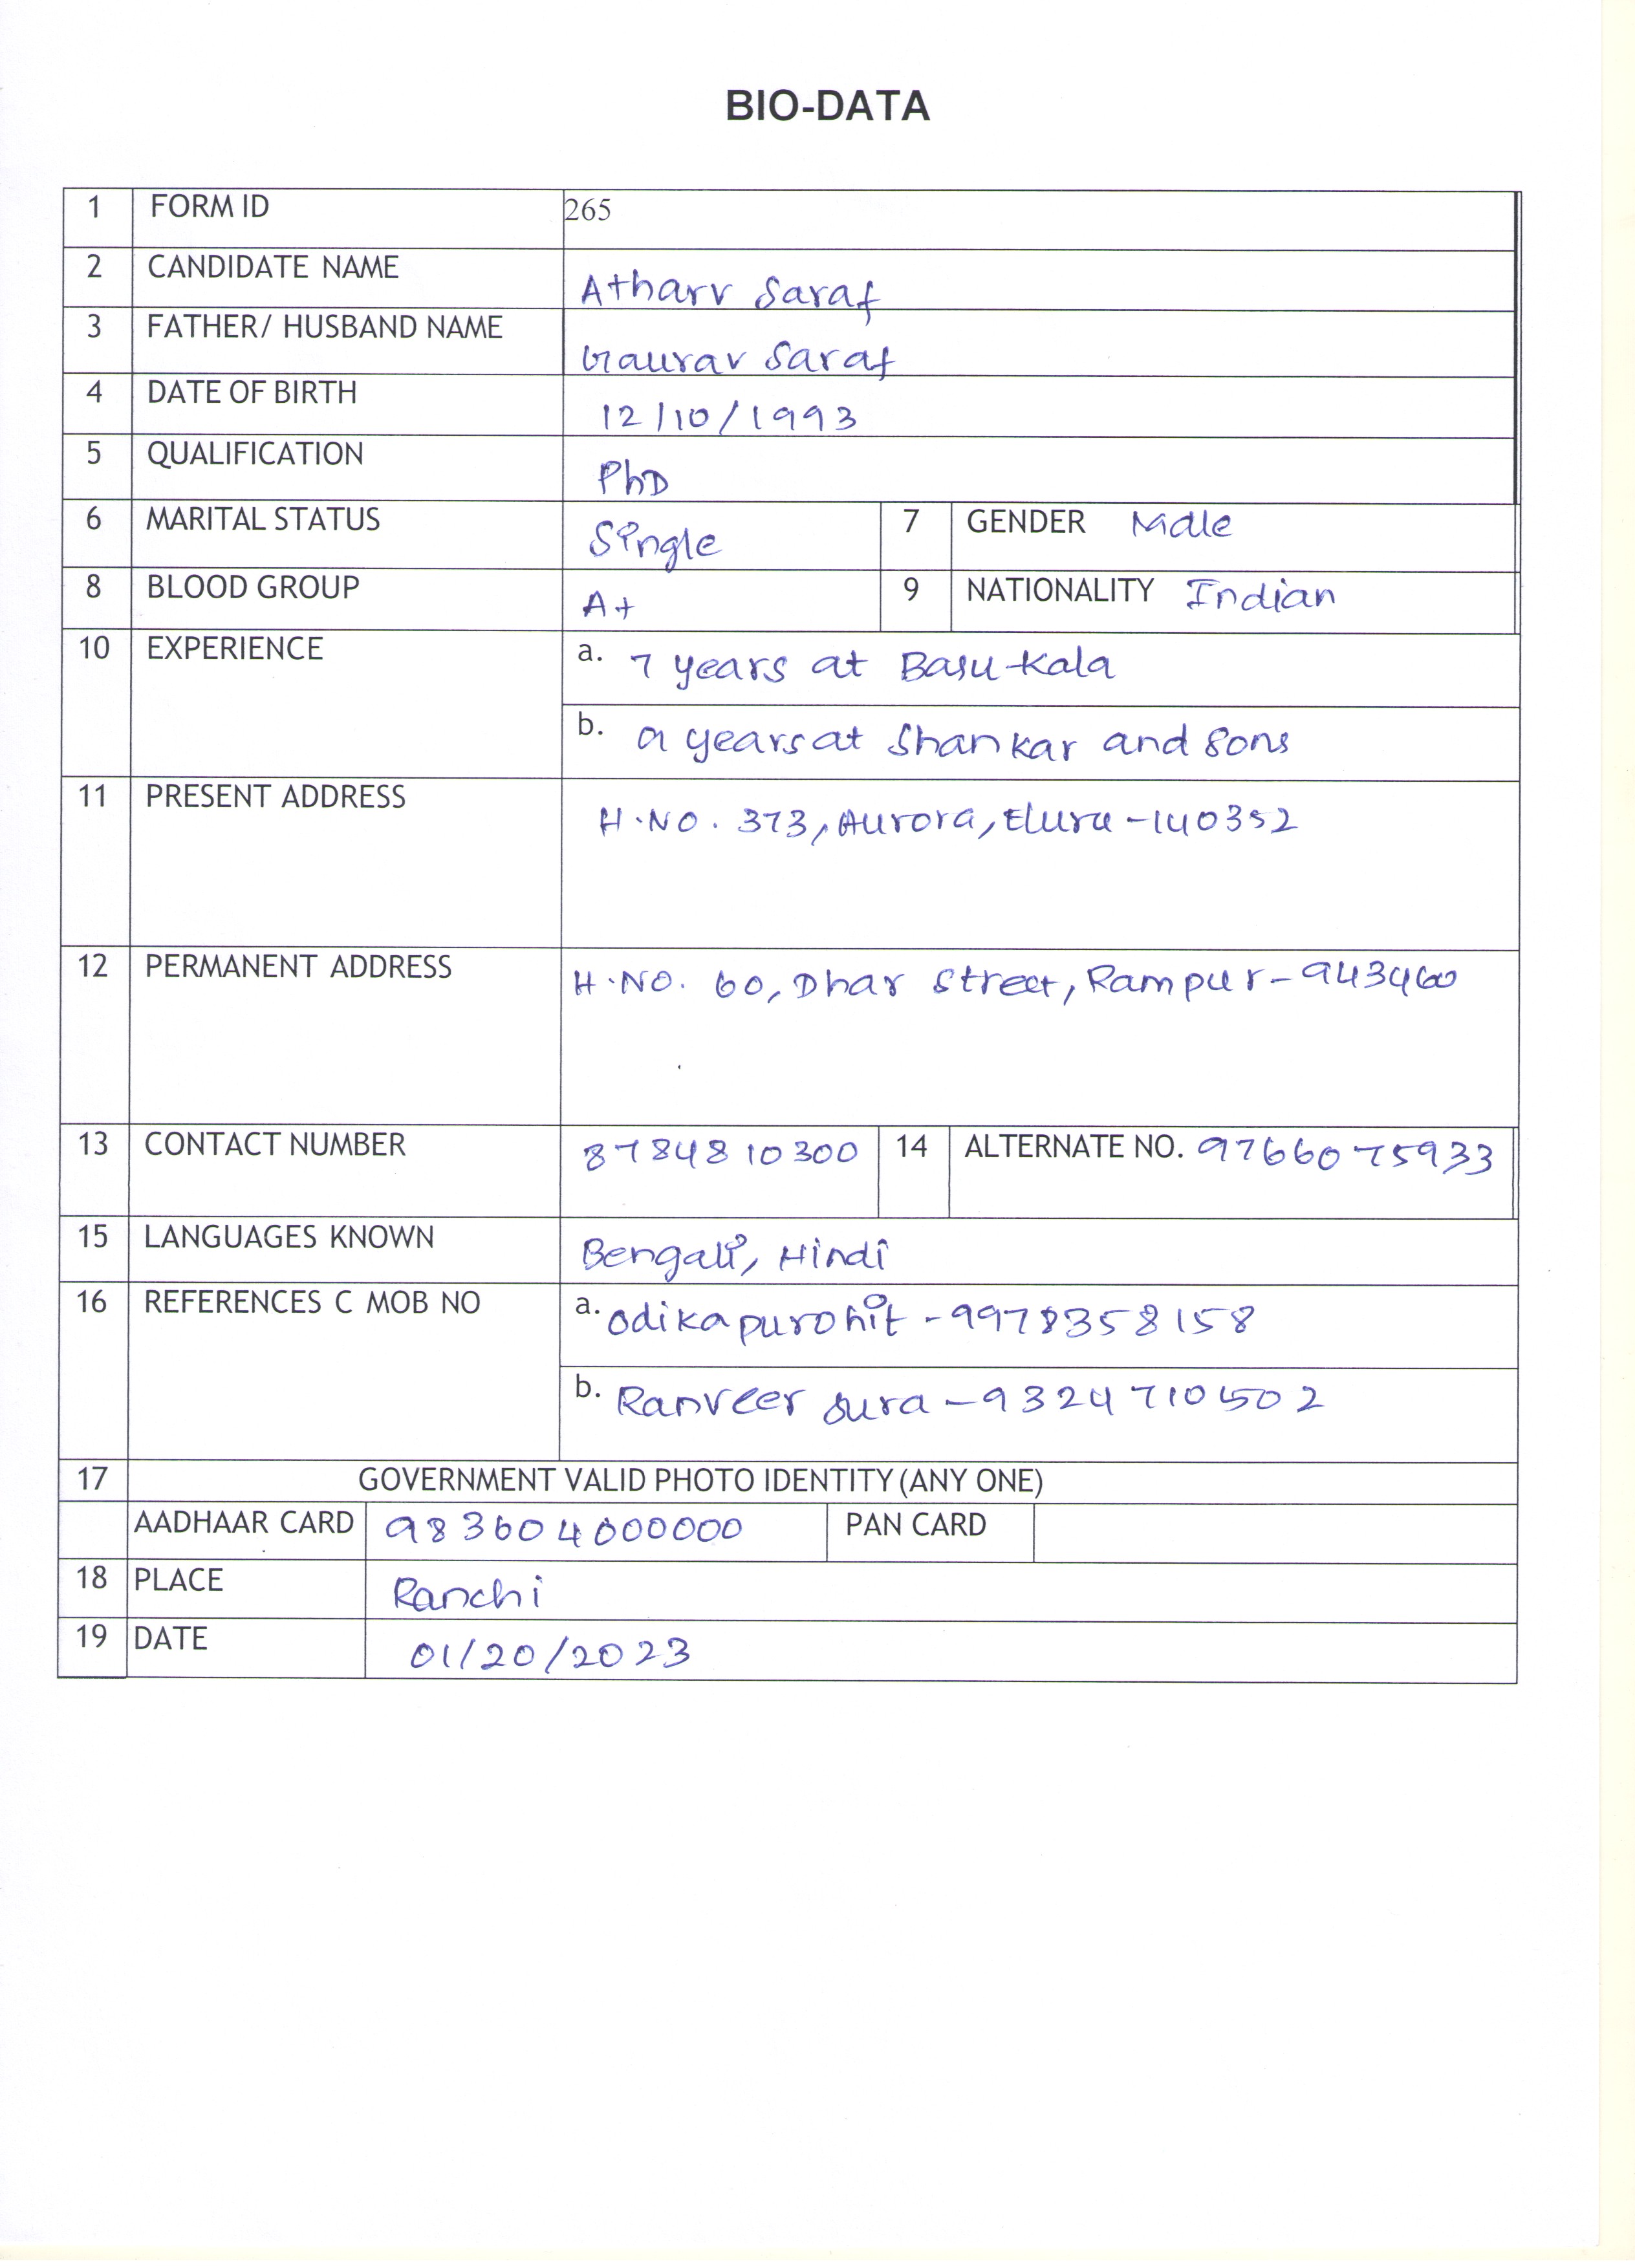 BIO-DATA
1 FORM ID 265
2 CANDIDATE NAME Atharv Saraf
3 FATHER/ HUSBAND NAME Gaurav Saraf
4 DATE OF BIRTH 12/10/1993
5 QUALIFICATION PhD
6 MARITAL STATUS Single 7 GENDER Male
8 BLOOD GROUP A+ 9 NATIONALITY Indian
10 EXPERIENCE a. 7 years at Basu-Kala
b. 9 years at Shankar and Sons
11 PRESENT ADDRESS H.NO. 373, Aurora, Eluru-140352
12 PERMANENT ADDRESS H.NO. 60, Dhar Street, Rampur-943460
13 CONTACT NUMBER 8784810300 14 ALTERNATE NO. 9766075933
15 LANGUAGES KNOWN Bengali, Hindi
16 REFERENCES C MOB NO a. Odika purohit - 9978358158
b. Ranveer Sura - 9324710502
17 GOVERNMENT VALID PHOTO IDENTITY (ANY ONE)
AADHAAR CARD 983604000000 PAN CARD
18 PLACE Ranchi
19 DATE 01/20/2023